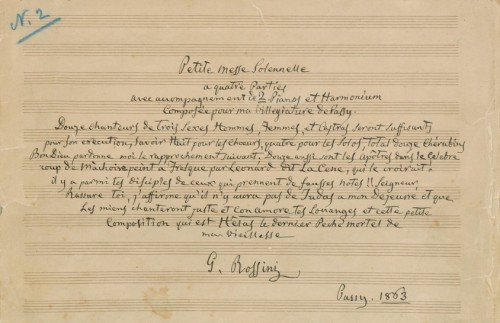 N. 2
Petite messe Solennelle
a quatre Parties
avec accompagnement de 2 Pianos et Harmonium
Composée pour ma Villegiature de Passy.
Douze chanteurs de Trois Sexes Hommes, Femmes, et Castres seront suffisants
pour Son execution, Savoir Huit pour les Chœurs, quatre pour les Solos, Total douze cherubins
Bon Dieu pardonne moi le rapprochement Suivant, Douze aussi sont les apôtres dans le Celebre
coup de Machoire peint a Fresque par Leonard dit La Cene, qui le croirait.
il y a parmi tes Disciples de ceux qui prennent de fausses notes!! Seigneur
Rassure toi, j'affirme qu'il n'y aura pas de Judas a mon Dejeuné et que
Les miens chanteront juste et con amore tes Louanges et cette petite
Composition qui est Hélas le dernier Peché mortel de
ma vieillesse
G. Rossini
Passy. 1863